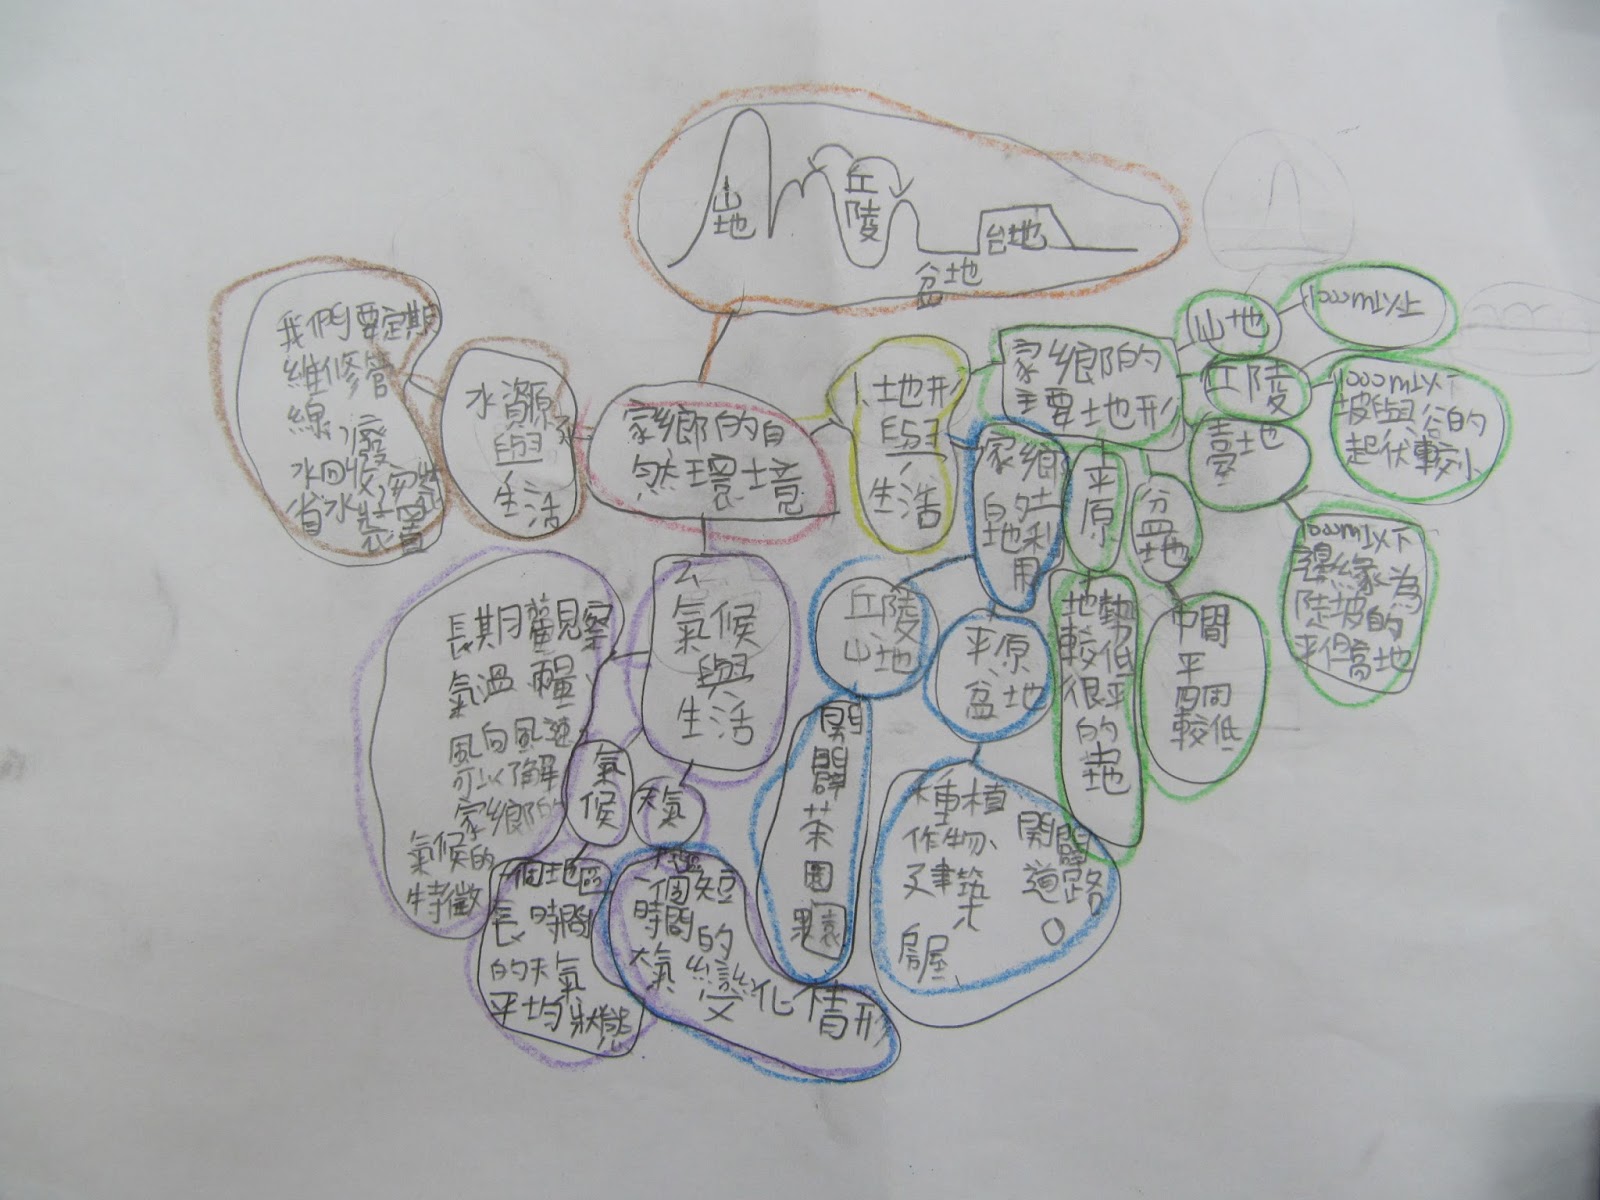 山地
丘陵
台地
盆地
家鄉的自
然環境
水資源
與
生活
我們要定期
維修管
線、廢
水回收
省水裝置
1、地形
與
生活
家鄉的
主要地形
山地
1000m以上
丘陵
1000m以下
坡與谷的
起伏較小
臺地
1000m以下
邊緣為
陡坡的
平但高地
盆地
中間
平
四周
較低
平原
地勢
較低
很平
的
地
家鄉
的土
地利
用
丘陵
山地
開
闢
茶
園
果園
平原
盆地
種植
作物、
又建築
房屋、
開闢
道路
。
2、
氣候
與
生活
長期觀察
氣溫、雨量
風向、風速
可以了解
家鄉的
氣候的
特徵
氣候
一個地區
長時間
的天氣
平均狀態
天氣
一個短
時間的
大氣
變化情形